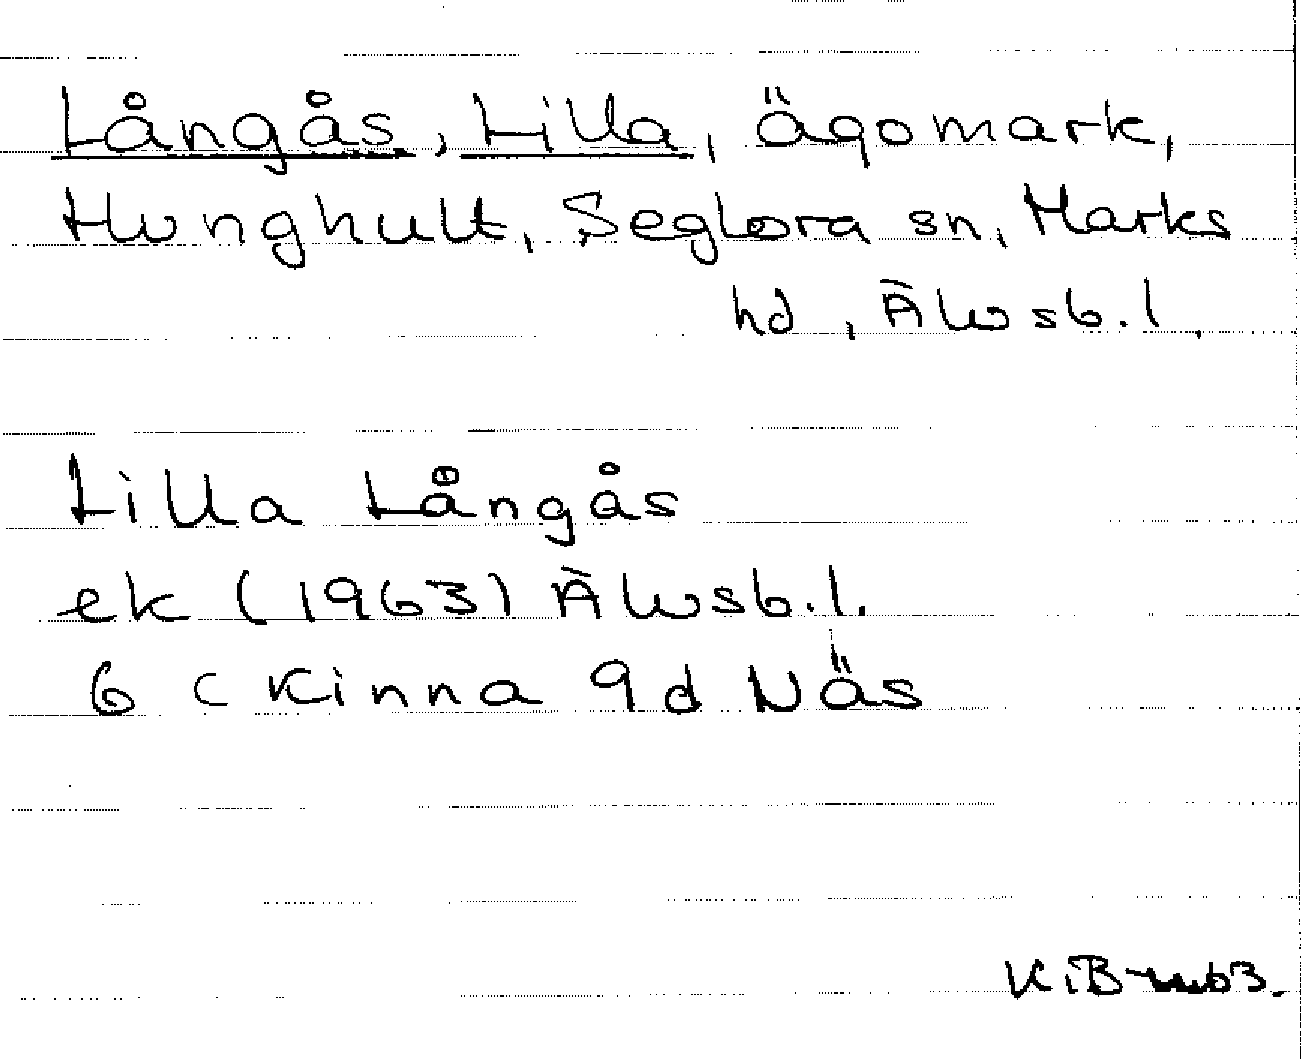 Långås, Lilla, Ägomark,
Hunghult, Seglora sn, Marks
hd, Älvsb.l.
Lilla Långås
ek (1963) Älvsb.l.
6 c Kinna 9d Näs